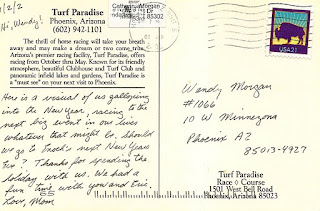 1/2/2
Hi, Wendy!
Turf Paradise
Phoenix, Arizona
(602) 942-1101
The thrill of horse racing will take your breath
away and may make a dream or two come true.
Arizona's premier racing facility, Turf Paradise, offers
racing from October thru May. Known for its friendly
atmosphere, beautiful Clubhouse and Turf Club and
panoramic infield lakes and gardens, Turf Paradise is
a "must see" on your next visit to Phoenix.
Here is a visual of us galloping
into the New Year, racing to the
next big event in our lives
whatever that might be. Should
we go to Track's next New Years
Eve? Thanks for spending the
holiday with us. We had a
fun time with you and Eric.
Love, Mom
Morgan
85302
USA21
Wendy Morgan
#1066
10 W Minnezona
Phoenix AZ
85013-4927
Turf Paradise
Race Course
1501 West Bell Road
Phoenix, Arizona 85023